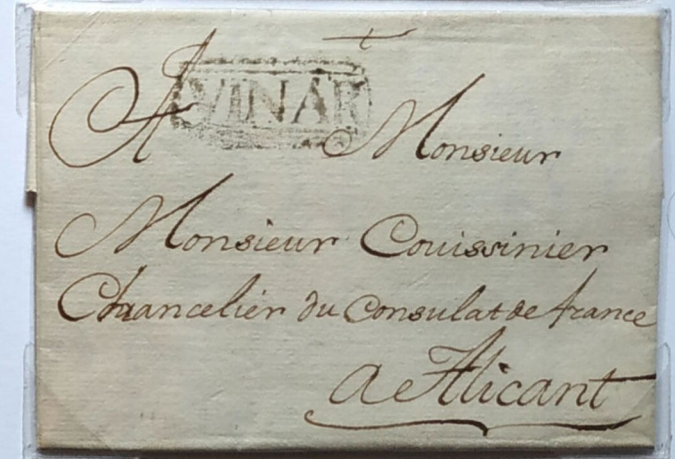 VINAR
A Monsieur
Monsieur Couissinier
Chancelier du Consulat de france
a Alicant